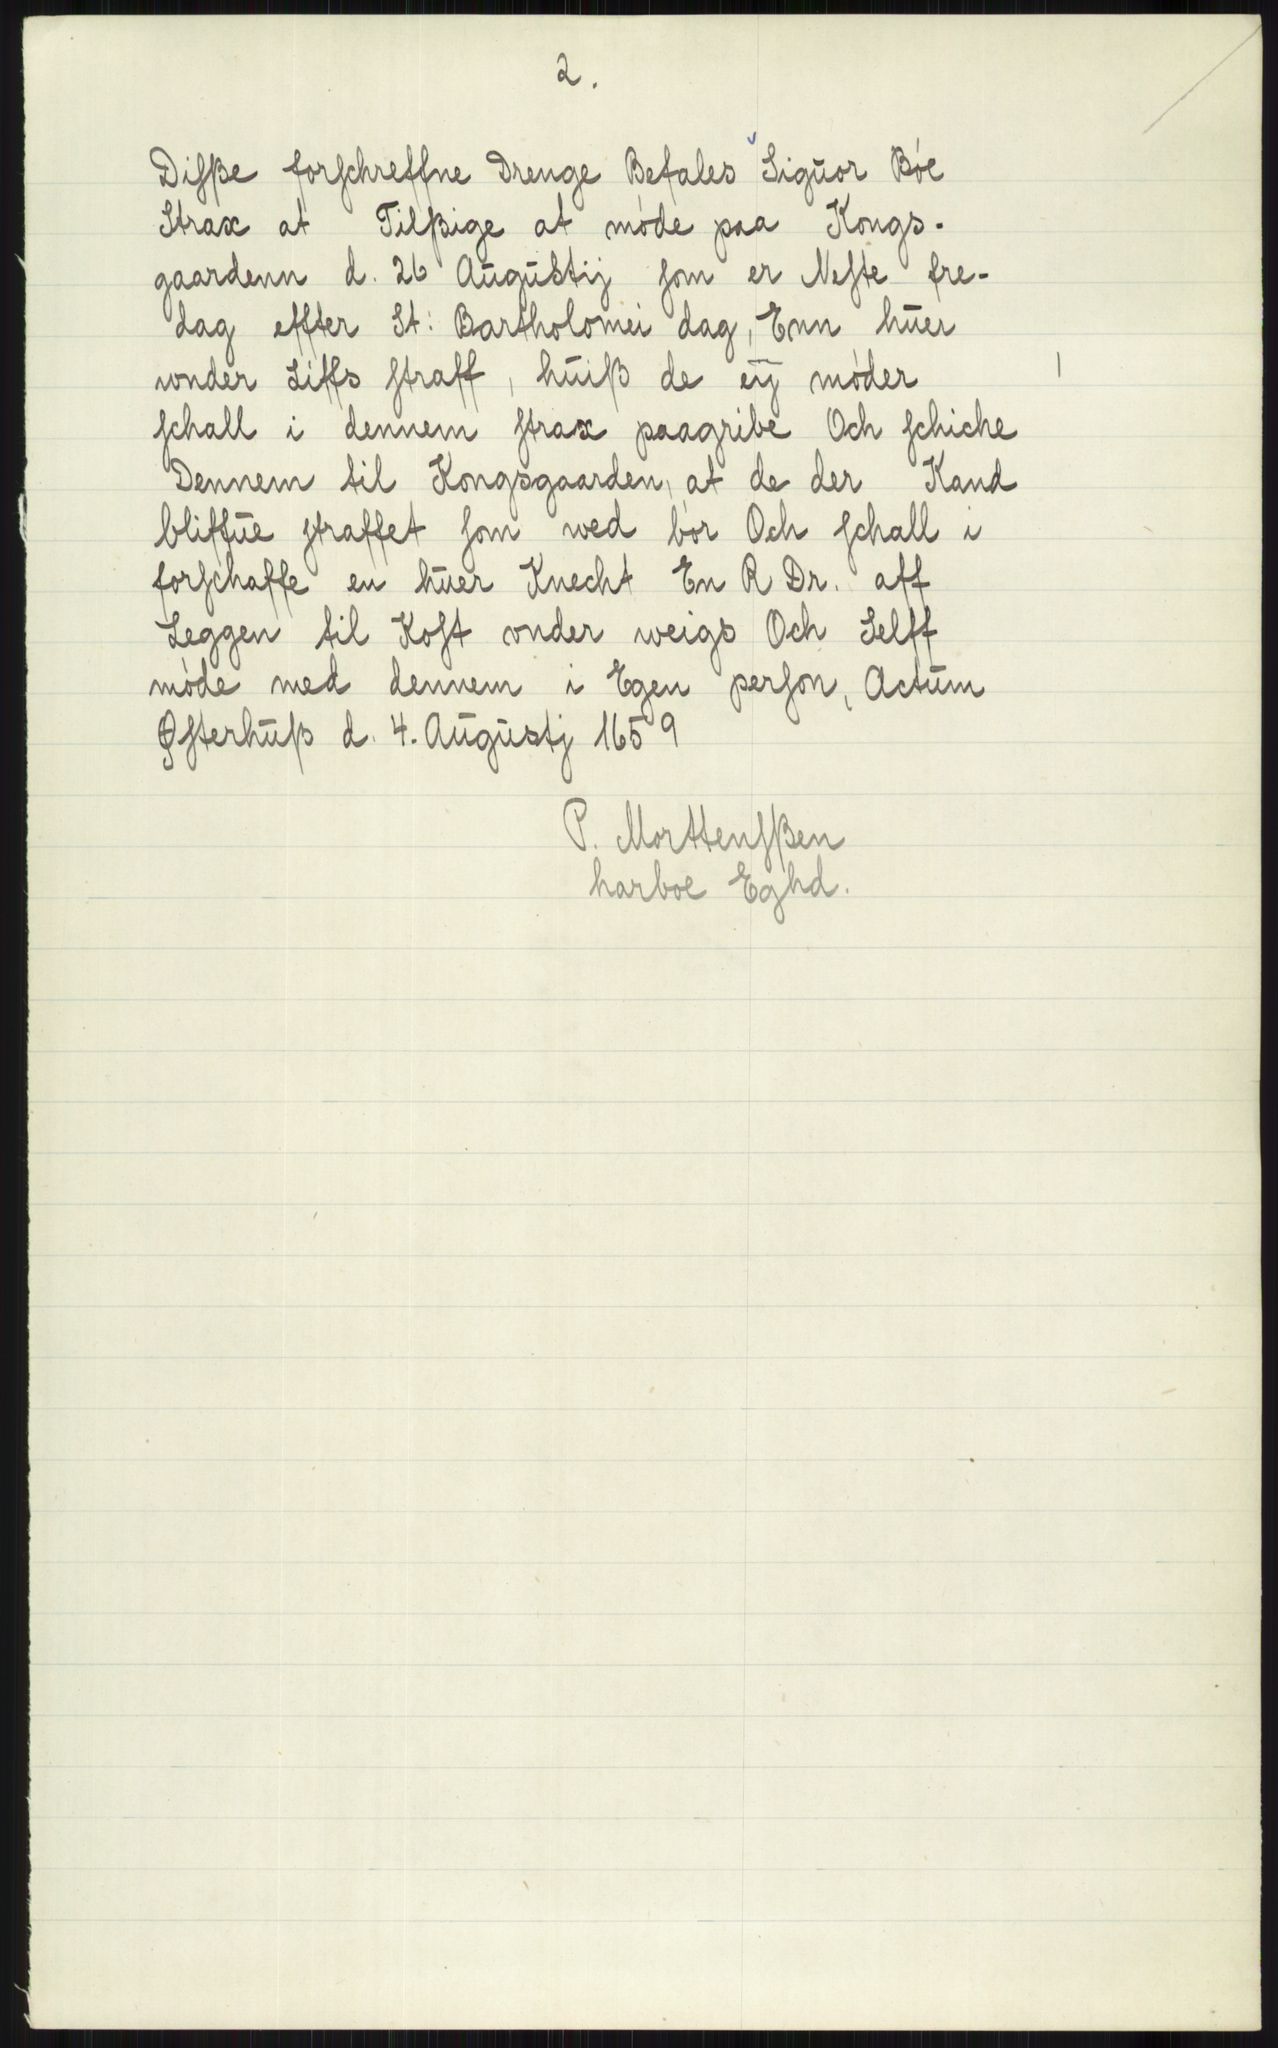 2.
Disße forschreffne Drenge Befales Siguor Bóe
Strax at Tilßige at móde paa Kongs-
gaardenn d. 26 Augustij som er Neste fre-
dag effter St: Bartholomei dag, Enn huer
vonder Liffs straff, huiß de eij móder
schall i dennem strax paagribe Och schiche
Dennem til Kongsgaarden, at de der Kand
bliffue straffet som wed bór Och schall i
forschaffe en huer Knecht En R Dr. aff
Leggen til Kost vnder weigs Och Selff
móde med dennem i Egen person, Actum
Østerhuß d. 4. Augustj 1659
P. Morttensßen
harboe Eghd.